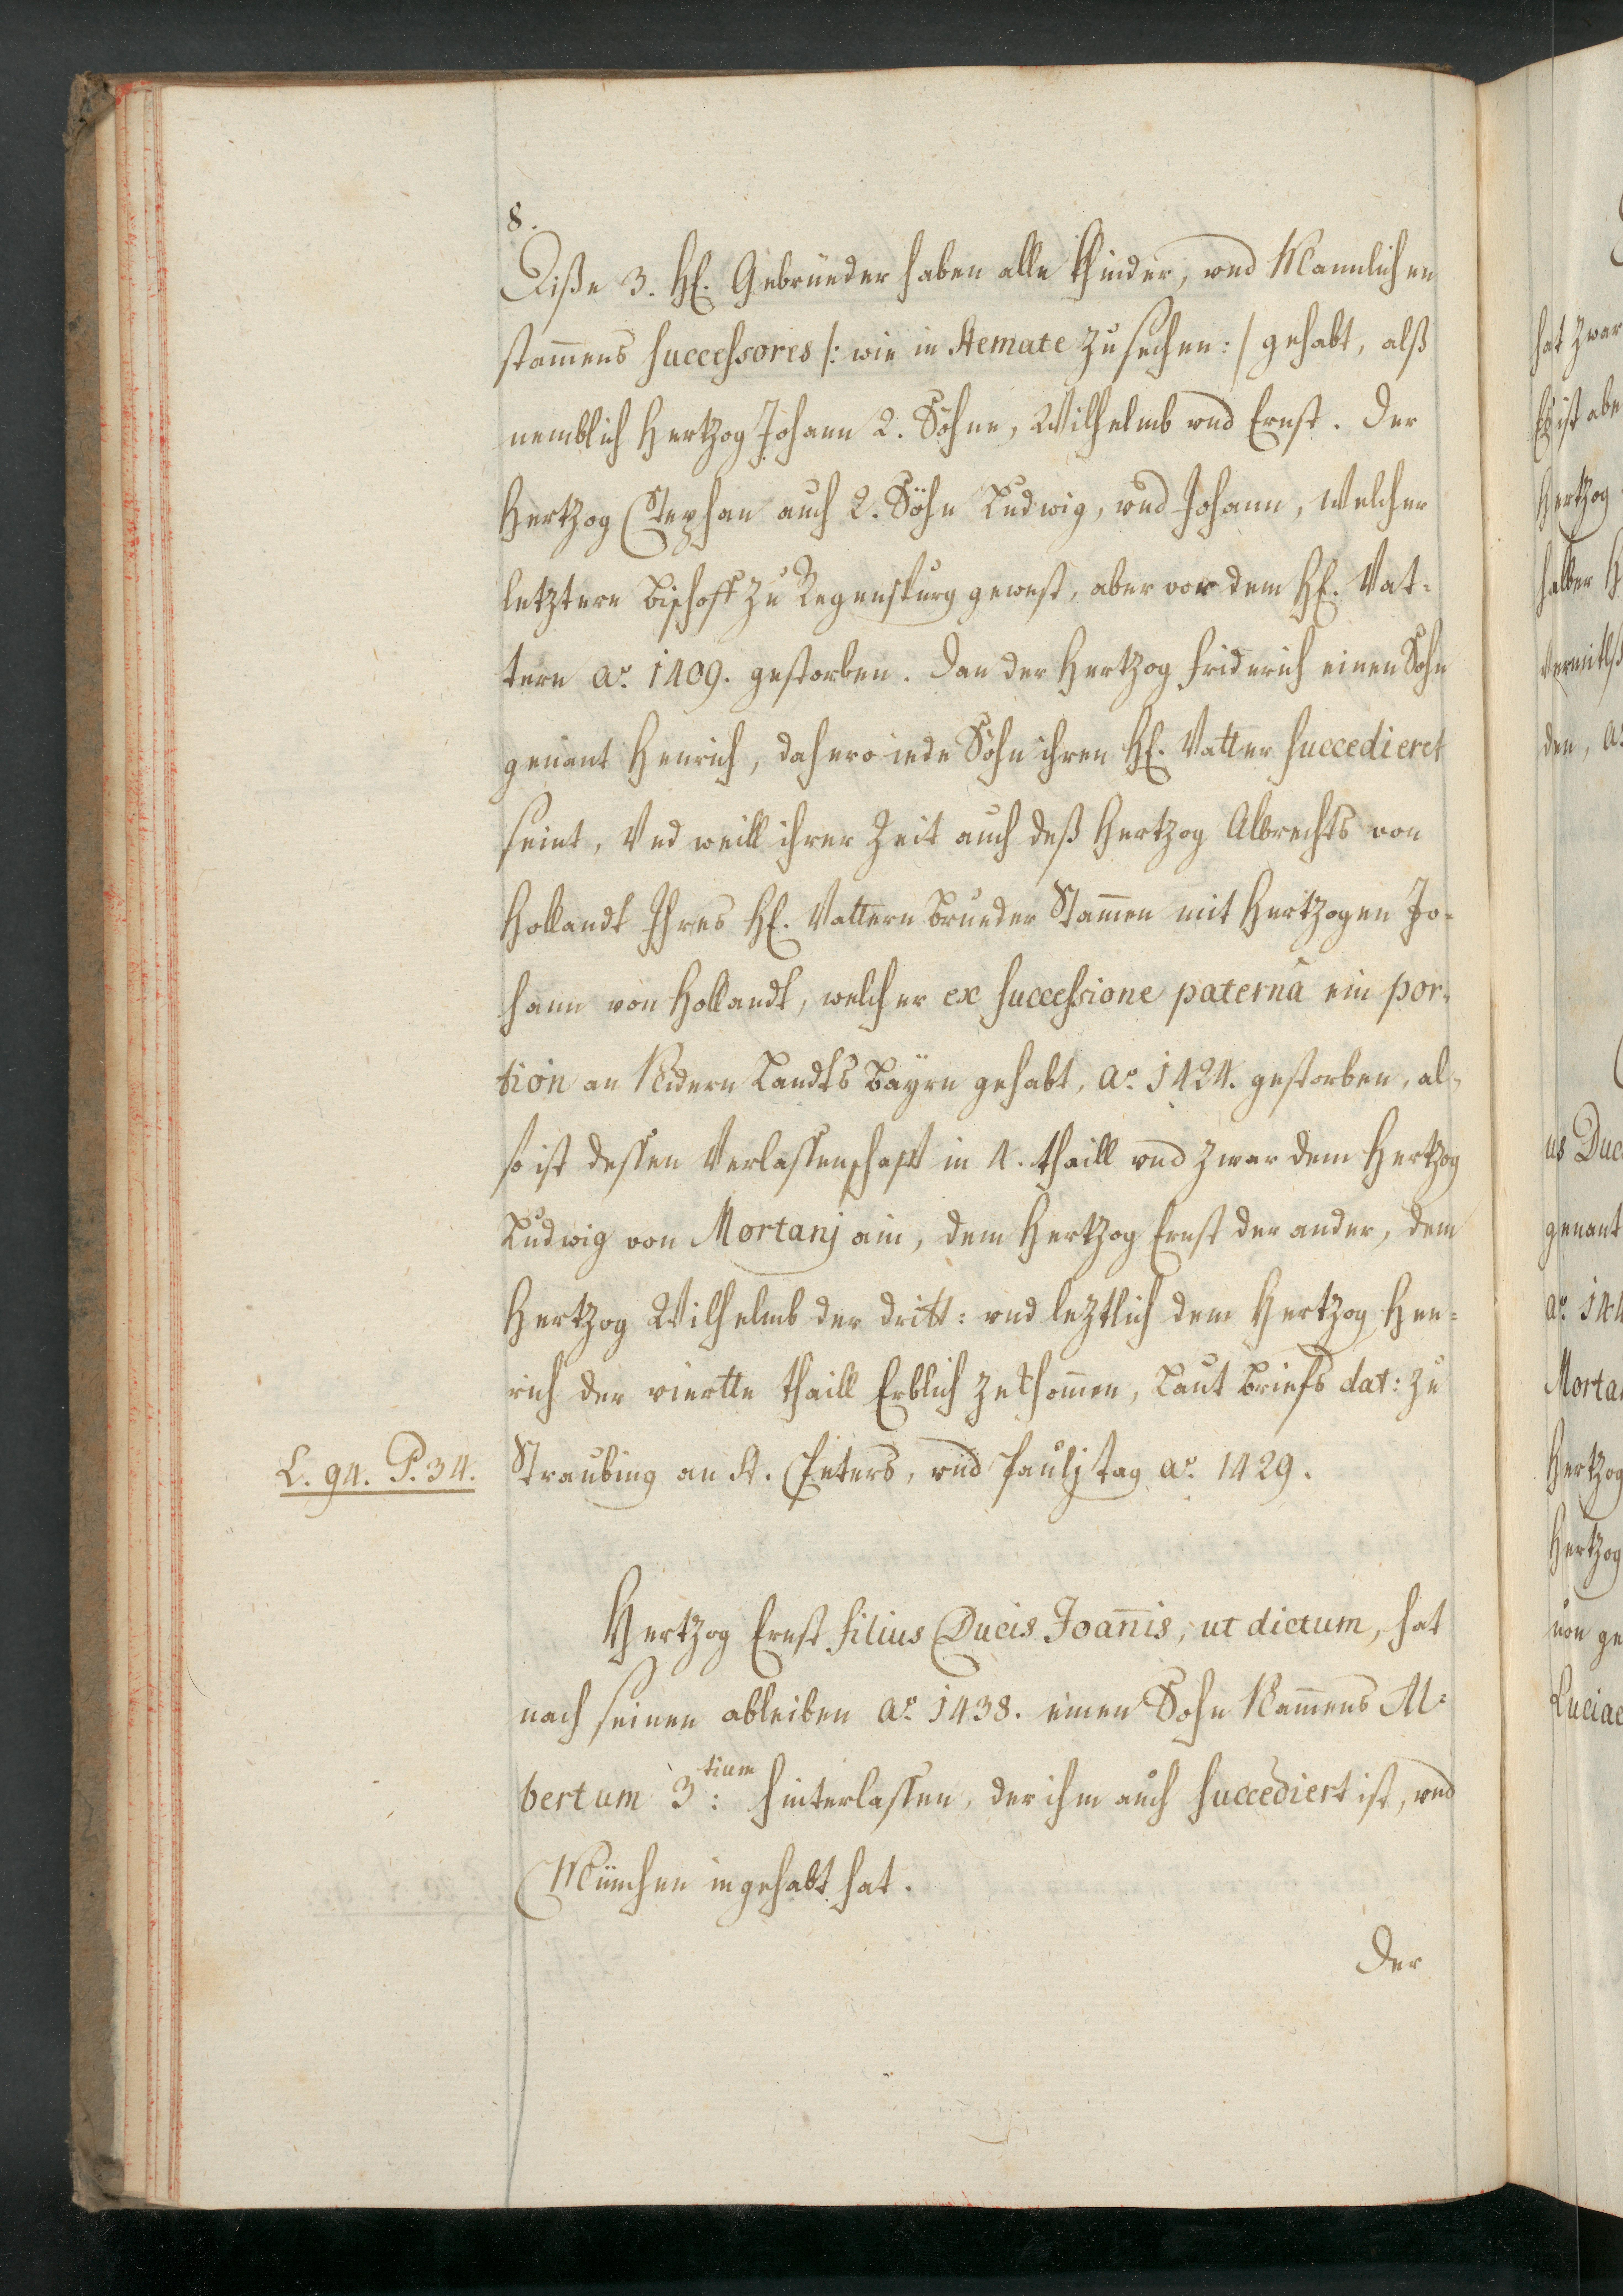 8.
Diße 3. H. Gebrüeder haben alle Khinder, und Mannlichen
stam̄ens successores /: wie in stemate zu sechen :/ gehabt, alß
nemblich Hertzog Johann 2. Söhne, Wilhelmb und Ernst. Der
Hertzog Stephan auch 2. Söhn Ludwig, und Johann, welcher
letztere Bischoff zu Regenspurg gewest, aber vor dem H. Vat-
tern aō. 1409. gestorben. Dan der Hertzog Friderich einen Sohn
genant Henrich, dahero iede Söhn ihren H. Vatter succedieret
seint, Und weill ihrer Zeit auch deß Hertzog Albrechts von
Hollandt Ihres H. Vattern Brueder Stam̄en mit Hertzogen Jo-
hann von Hollandt, welcher ex successione paternâ ein por-
tion an Nidern Landts Bayrn gehabt, aō. 1424. gestorben, al-
so ist dessen Verlassenschafft in 4. thaill und zwar dem Hertzog
Ludwig von Mortanj ain, dem Hertzog Ernst der ander, dem
Hertzog Wilhelmb der dritt: und leztlich dem Hertzog Hen-
rich der viertte thaill Erblich zekhom̄en, Laut Briefs dat: zu
L. 94. P. 34.
Straubing an St. Peters, und Paulj tag aō. 1429.
Hertzog Ernst filius Ducis Joan̄is, ut dictum, hat
nach seinen ableiben aō. 1438. einen Sohn Nam̄ens Al-
bertum 3:tium hinterlassen, der ihm auch succediert ist, und
München ingehabt hat.
Der
hat zwar
Es ist abe
Hertzog
halber H
vermitlß
den, aō
us Duc
genant
aō. 144
Morta
Hertzog
Hertzog
von ge
Luciae